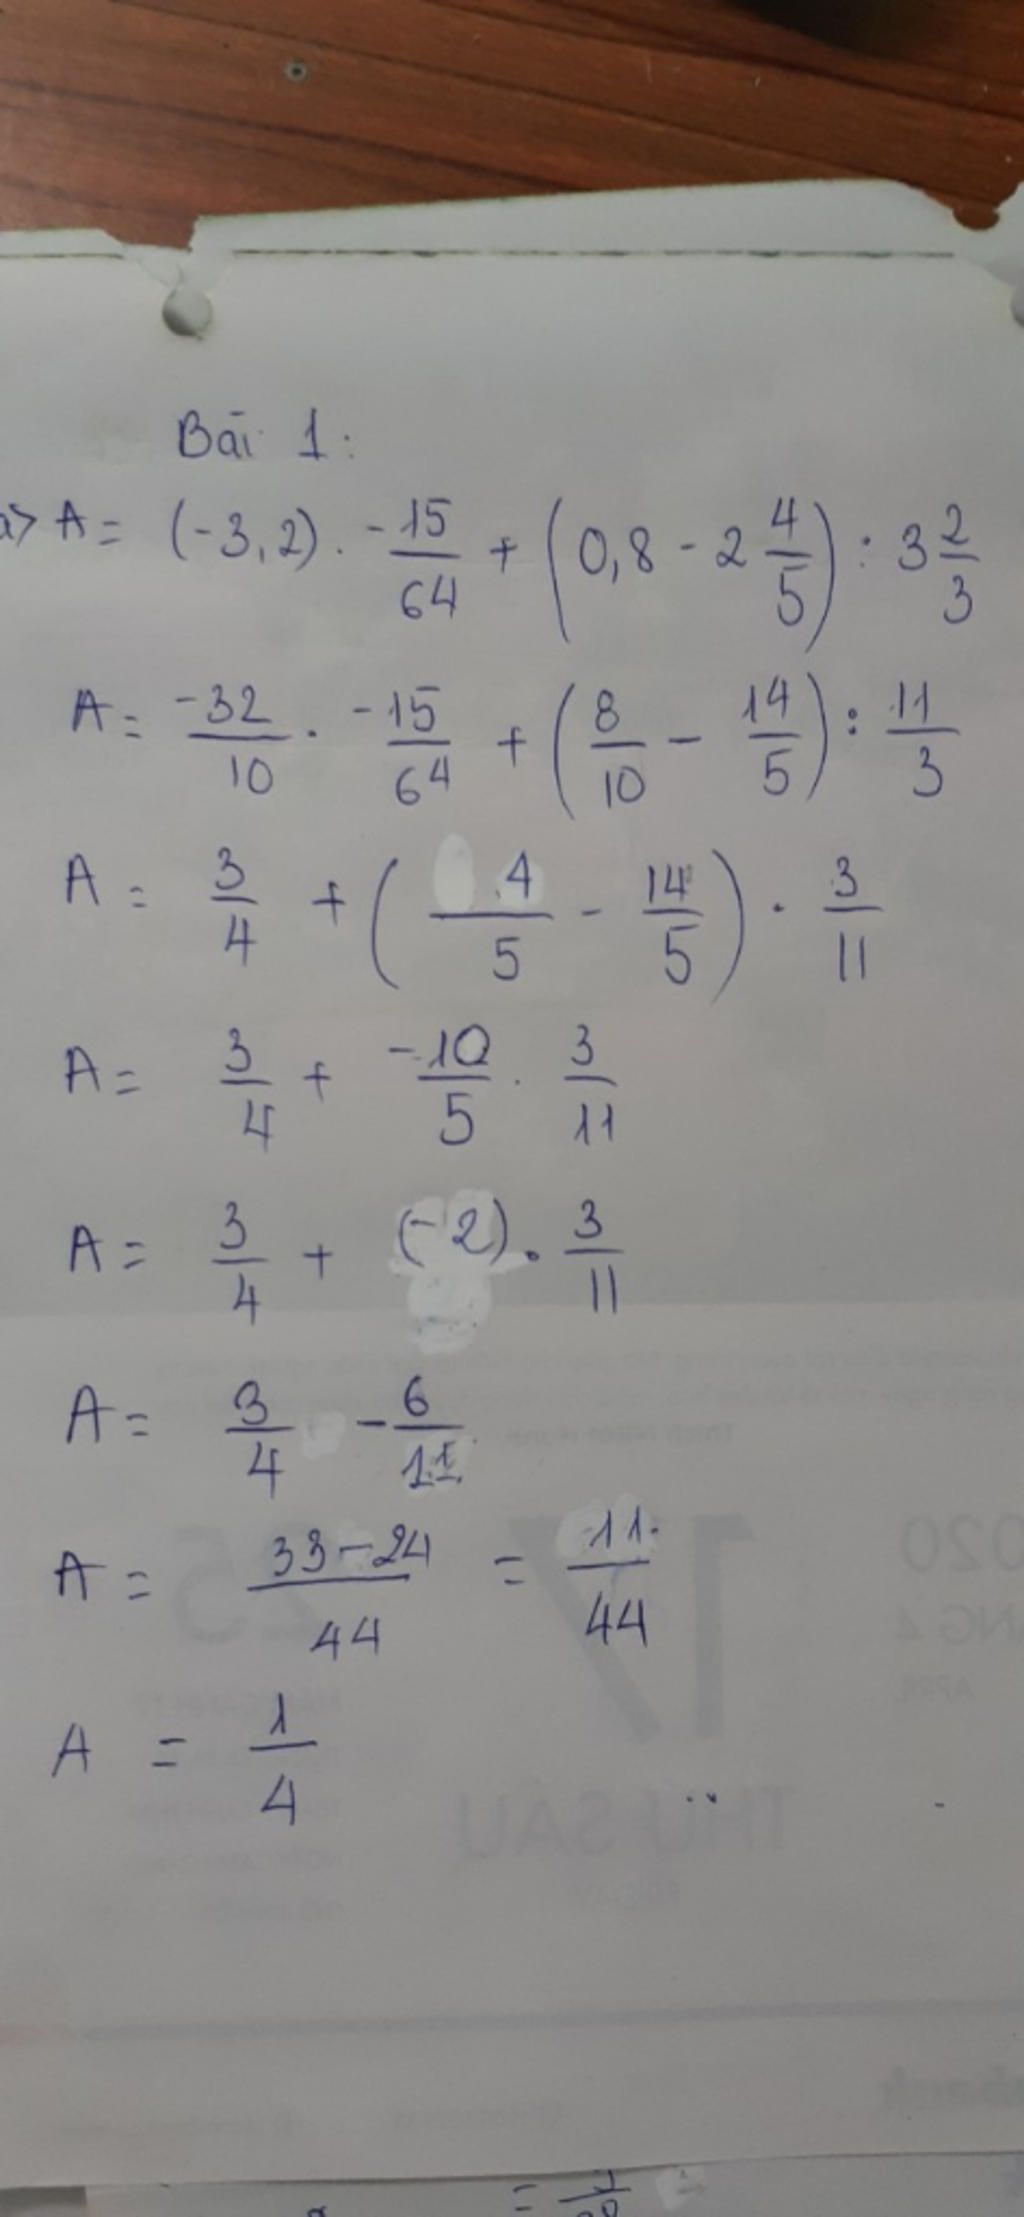 Bài 1:
a> A = (-3,2) . -15/64 + (0,8 - 2 4/5) : 3 2/3
A = -32/10 . -15/64 + (8/10 - 14/5) : 11/3
A = 3/4 + (4/5 - 14/5) . 3/11
A = 3/4 + -10/5 . 3/11
A = 3/4 + (-2) . 3/11
A = 3/4 - 6/11
A = 33-24/44 = 11/44
A = 1/4